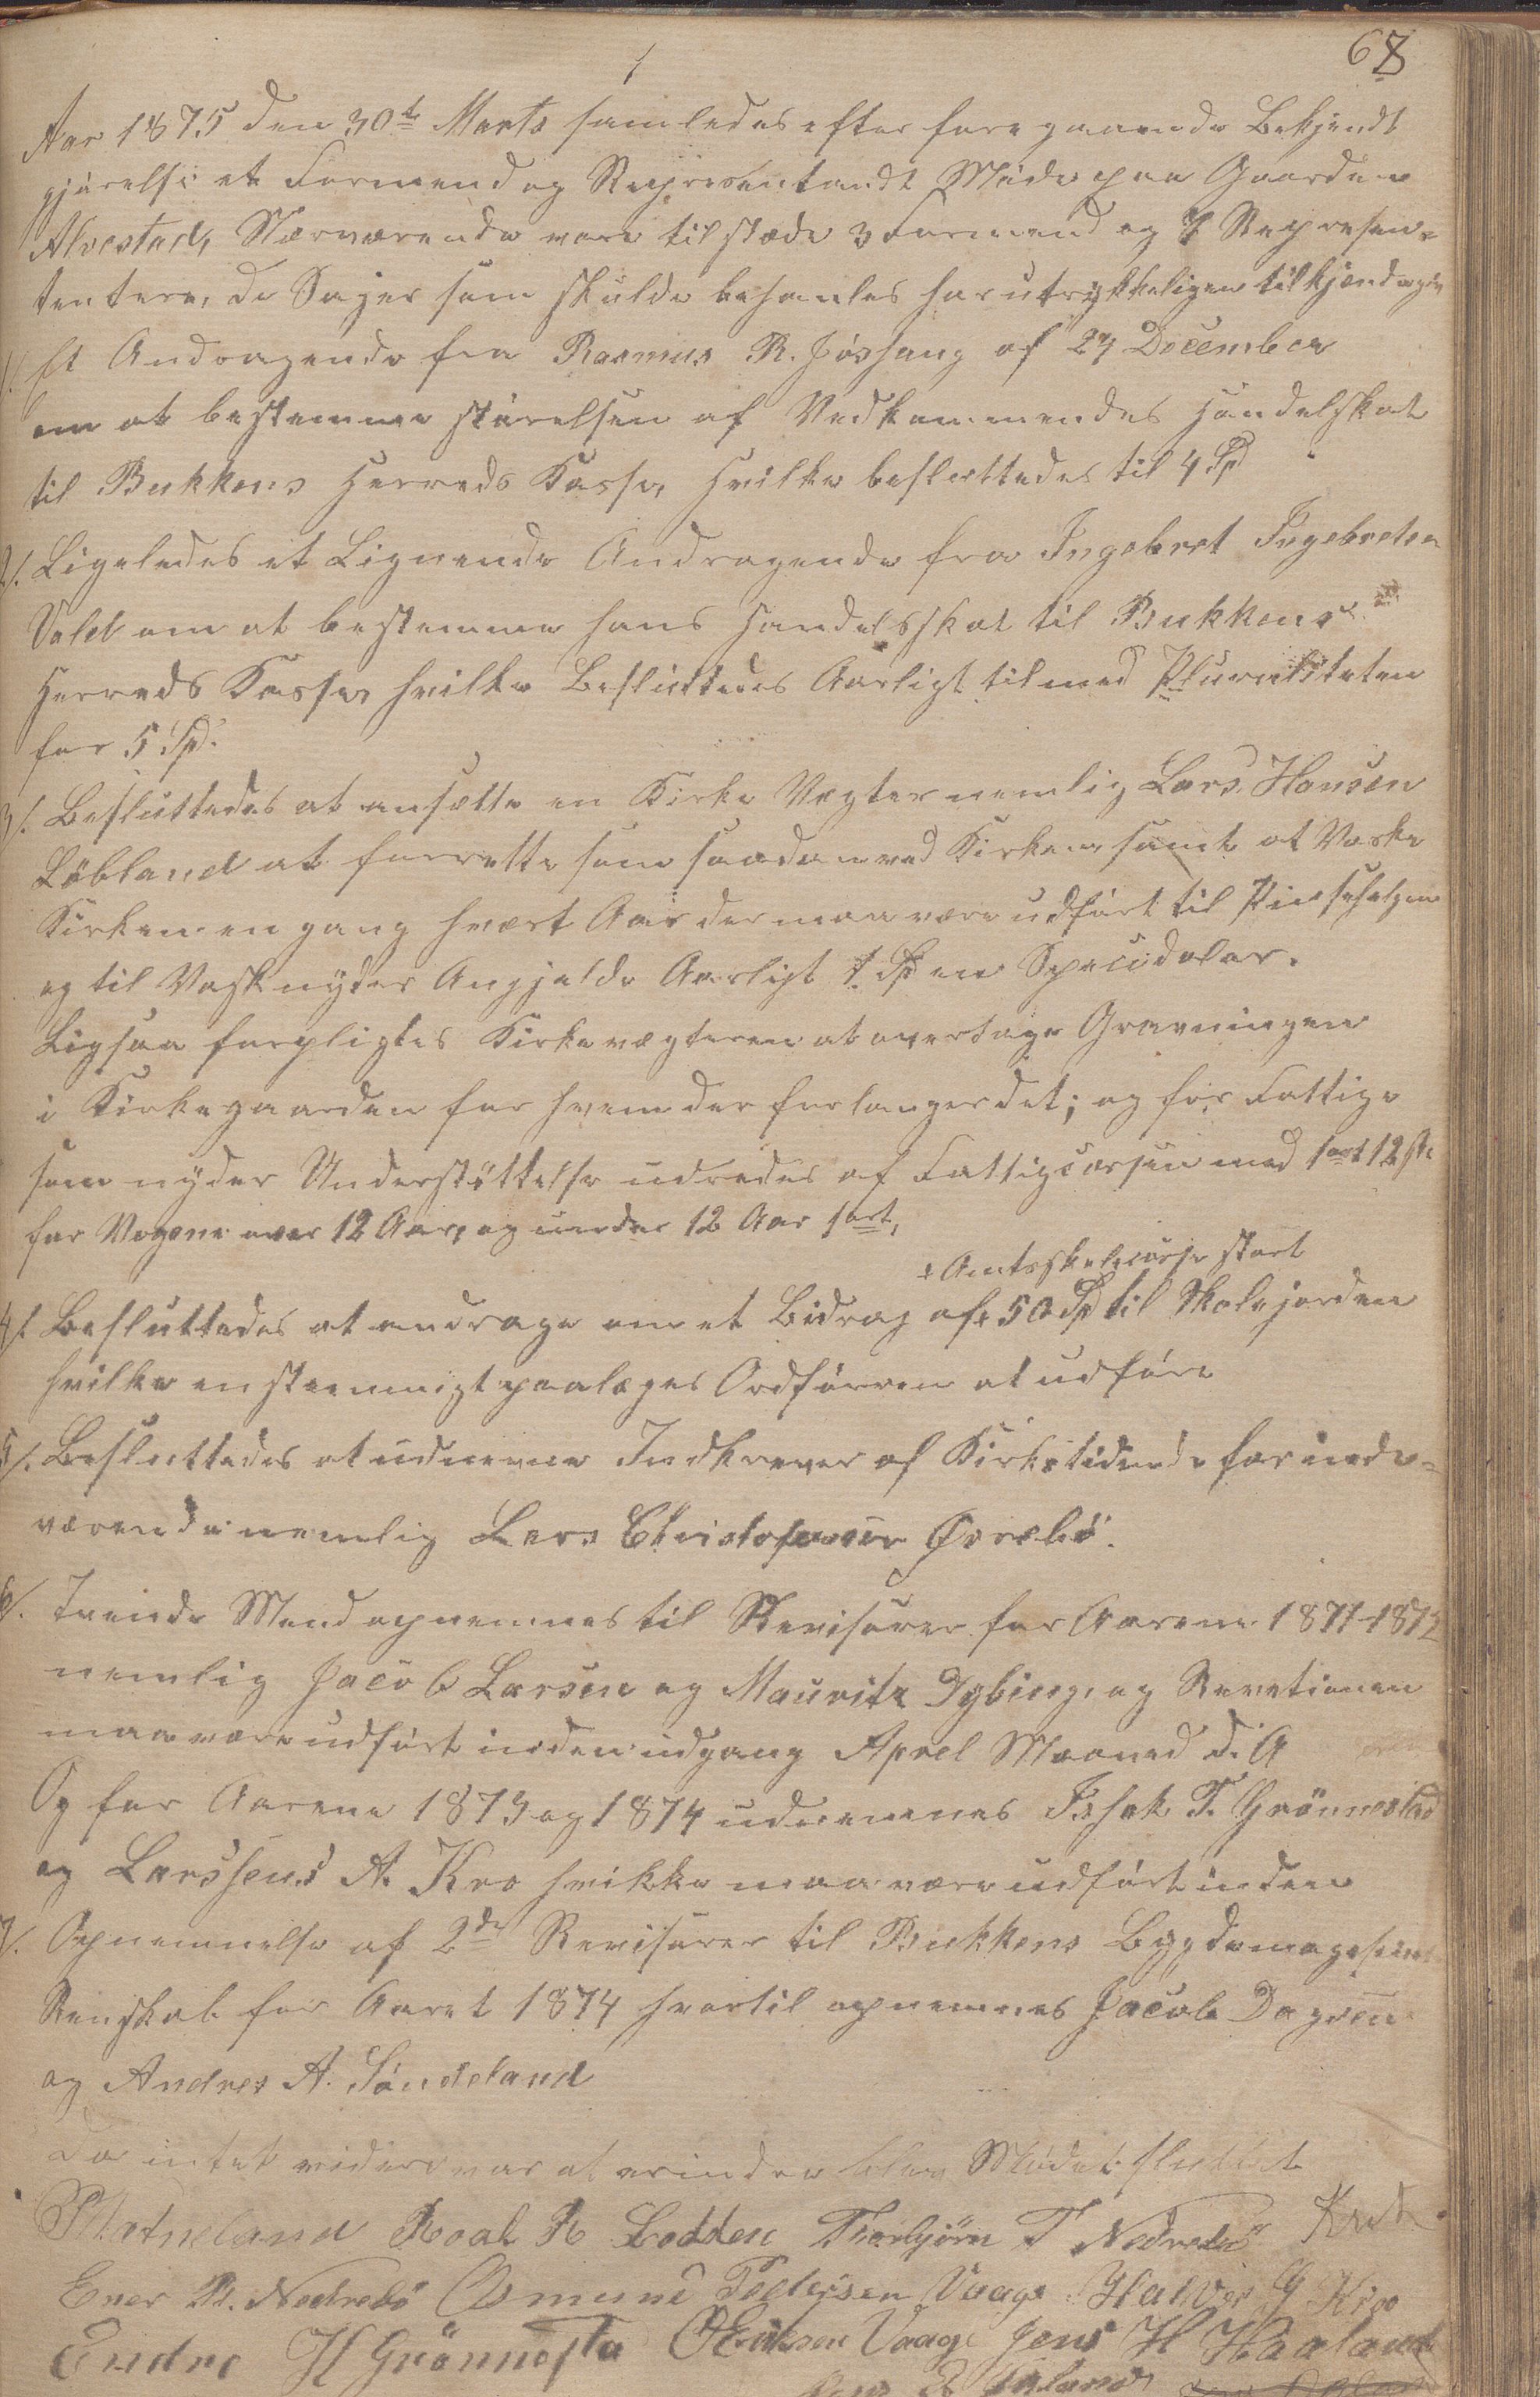 68
Aar 1875 den 30te Marts samledes efter foregaaende Bekjendt
gjörelse et Formend og Representandt Möde paa Gaarden
Alvestad, Nærværende vare tilstæde 3 Formend og 7 Represen-
tentere, de Sager som skulde behanles har utrykkeligen tilkjendegiv
1/. Et Andragende fra Rasmus R. Jösang af 27 December
om at bestemme störelsen af Vedkommendes Handelskat
til Bukkens Herreds Kasse, hvilke besluttedes til 4 Spd
2/. Ligeledes et Lignende Andragende fra Ingebret Ingebretsen
Vold om at bestemme hans Handelsskat til Bukkens
Herreds Kasse, hvilke Besluttedes Aarligt til med Pluraliteten
for 5 Spd.
3/. Besluttedes at ansætte en Kirke Vægter nemlig Lars Hansen
Löbland at forrette som saadan ved Kirken samt at Vaske
Kirken en gang hvert Aar der maa være udfört til Pinsehelgen
og til Vask nyder Angjelde Aarligt 1 Spd en Speciedaler.
Ligsaa forpligtes Kirkevægteren at overtage Gravningen
i Kirkegaarden for hvem der forlanger det; og for Fattige
som nyder Understöttelse udredes af Fattigcassen med 1 ort 12 sk
for Voxne over 12 Aar, og under 12 Aar 1 ort,
+ Amtsskolecasse stort
4/. Besluttedes at andrage om et Bidrag af + 50 Spd til Skolejorden
hvilke enstemmigt paalæges Ordföreren at udföre
5/. Besluttedes at udnevne Indkrever af Kirketidende for inde-
værende nemlig Lars Christofersen Øvrebö.
6/. Tvende Mend opnemnes til Revisorer for Aarene 1871-1872
nemlig Jacob Larsen og Mauritz Dybing, og Revetionen
maa være udfört inden udgang Aprel Maaned d. A
Og for Aarene 1873 og 1874 udnemnes Isak T. Grönnestad
og Larssens A. Kro hvikke maa være udfört inden
7/. Opnemnelse af 2de Revisorer til Bukkens Bygdemagasin
Renskab for Aaret 1874 hvortil opnemnes Jacob Dagsen
og Andres A. Söndeland
Da intet videre var at erindre blev Mödet sluttet
Roal R Lodden Thorbjörn T Nedrebö
Ener R. Nedrebö Osmund Pedersen Vaage Halvor G Kro
Endre H Grönnesta O Eriksen Vaage Jens H Haaland